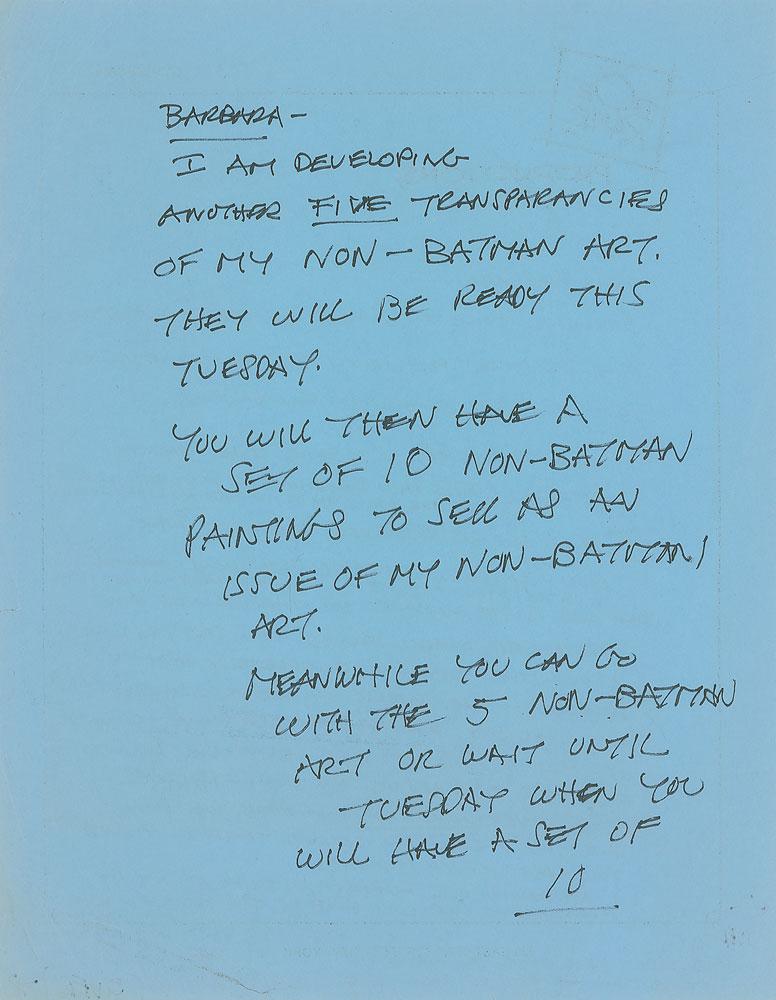 BARBARA -
I AM DEVELOPING
ANOTHER FIVE TRANSPARANCIES
OF MY NON-BATMAN ART.
THEY WILL BE READY THIS
TUESDAY.
YOU WILL THEN HAVE A
SET OF 10 NON-BATMAN
PAINTINGS TO SELL AS AN
ISSUE OF MY NON-BATMAN
ART.
MEANWHILE YOU CAN GO
WITH THE 5 NON-BATMAN
ART OR WAIT UNTIL
TUESDAY WHEN YOU
WILL HAVE A SET OF
10